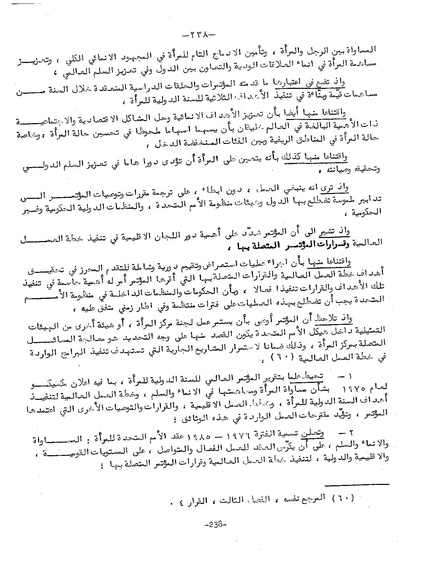 -٢٣٨-
المساواة بين الرجل والمرأة ، وتأمين الادماج التام للمرأة في المجهود الانمائي الكلي ، وتعزيز
مساهمة المرأة في انماء العلاقات الودية والتعاون بين الدول وفي تعزيز السلم العالمي ،
واذ تضع في اعتبارها ما قدمته المؤتمرات والحلقات الدراسية المنعقدة خلال السنة من
مساهمات قيمة وبناءة في تنفيذ الأهداف الثلاثية للسنة الدولية للمرأة ،
واقتناعا منها أيضا بأن تعزيز الأهداف الانمائية وحل المشاكل الاقتصادية والاجتماعية
ذات الأهمية البالغة في العالم خليقان بأن يسهما اسهاما ملحوظا في تحسين حالة المرأة ، وبخاصة
حالة المرأة في المناطق الريفية وبين الفئات المنخفضة الدخل ،
واقتناعا منها كذلك بأنه يتعين على المرأة أن تؤدي دورا هاما في تعزيز السلم الدولي
وتحقيقه وصيانته ،
واذ ترى انه ينبغي العمل ، دون ابطاء ، على ترجمة مقررات وتوصيات المؤتمر الى
تدابير ملموسة تضطلع بها الدول وهيئات منظومة الأمم المتحدة ، والمنظمات الدولية الحكومية وغير
الحكومية ،
واذ تشير الى أن المؤتمر شدد على أهمية دور اللجان الاقليمية في تنفيذ خطة العمل
العالمية وقرارات المؤتمر المتصلة بها ،
واقتناعا منها بأن اجراء عمليات استعراض وتقييم دورية وشاملة للتقدم المحرز في تحقيق
أهداف خطة العمل العالمية والقرارات المتصلة بها التي أقرها المؤتمر أمر له أهمية حاسمة في تنفيذ
تلك الأهداف والقرارات تنفيذا فعالا ، وبأن الحكومات والمنظمات الداخلة في منظومة الأمم
المتحدة يجب أن تضطلع بهذه العمليات على فترات منتظمة وفي اطار زمني متفق عليه ،
واذ تلاحظ أن المؤتمر أوصى بأن يستمر عمل لجنة مركز المرأة ، أو هيئة أخرى من الهيئات
التمثيلية داخل هيكل الأمم المتحدة يكون القصد منها على وجه التحديد هو معالجة المسائل
المتصلة بمركز المرأة ، وذلك ضمانا لاستمرار المشاريع الجارية التي تستهدف تنفيذ البرامج الواردة
في خطة العمل العالمية (٦٠) ،
١ - تحيط علما بتقرير المؤتمر العالمي للسنة الدولية للمرأة ، بما فيه اعلان مكسيكو
لعام ١٩٧٥ بشأن مساواة المرأة ومساهمتها في الانماء والسلم ، وخطة العمل العالمية لتنفيذ
أهداف السنة الدولية للمرأة ، وخطط العمل الاقليمية ، والقرارات والتوصيات الأخرى التي اعتمدها
المؤتمر ، وتؤيد مقترحات العمل الواردة في هذه الوثائق ؛
٢ - وتعلن تسمية الفترة ١٩٧٦ - ١٩٨٥ عقد الأمم المتحدة للمرأة : المساواة
والانماء والسلم ، على أن يكرس العقد للعمل الفعال والمتواصل ، على المستويات القومية ،
والاقليمية والدولية ، لتنفيذ خطة العمل العالمية وقرارات المؤتمر المتصلة بها ؛
(٦٠) المرجع نفسه ، الفصل الثالث ، القرار ٤ .
-238-